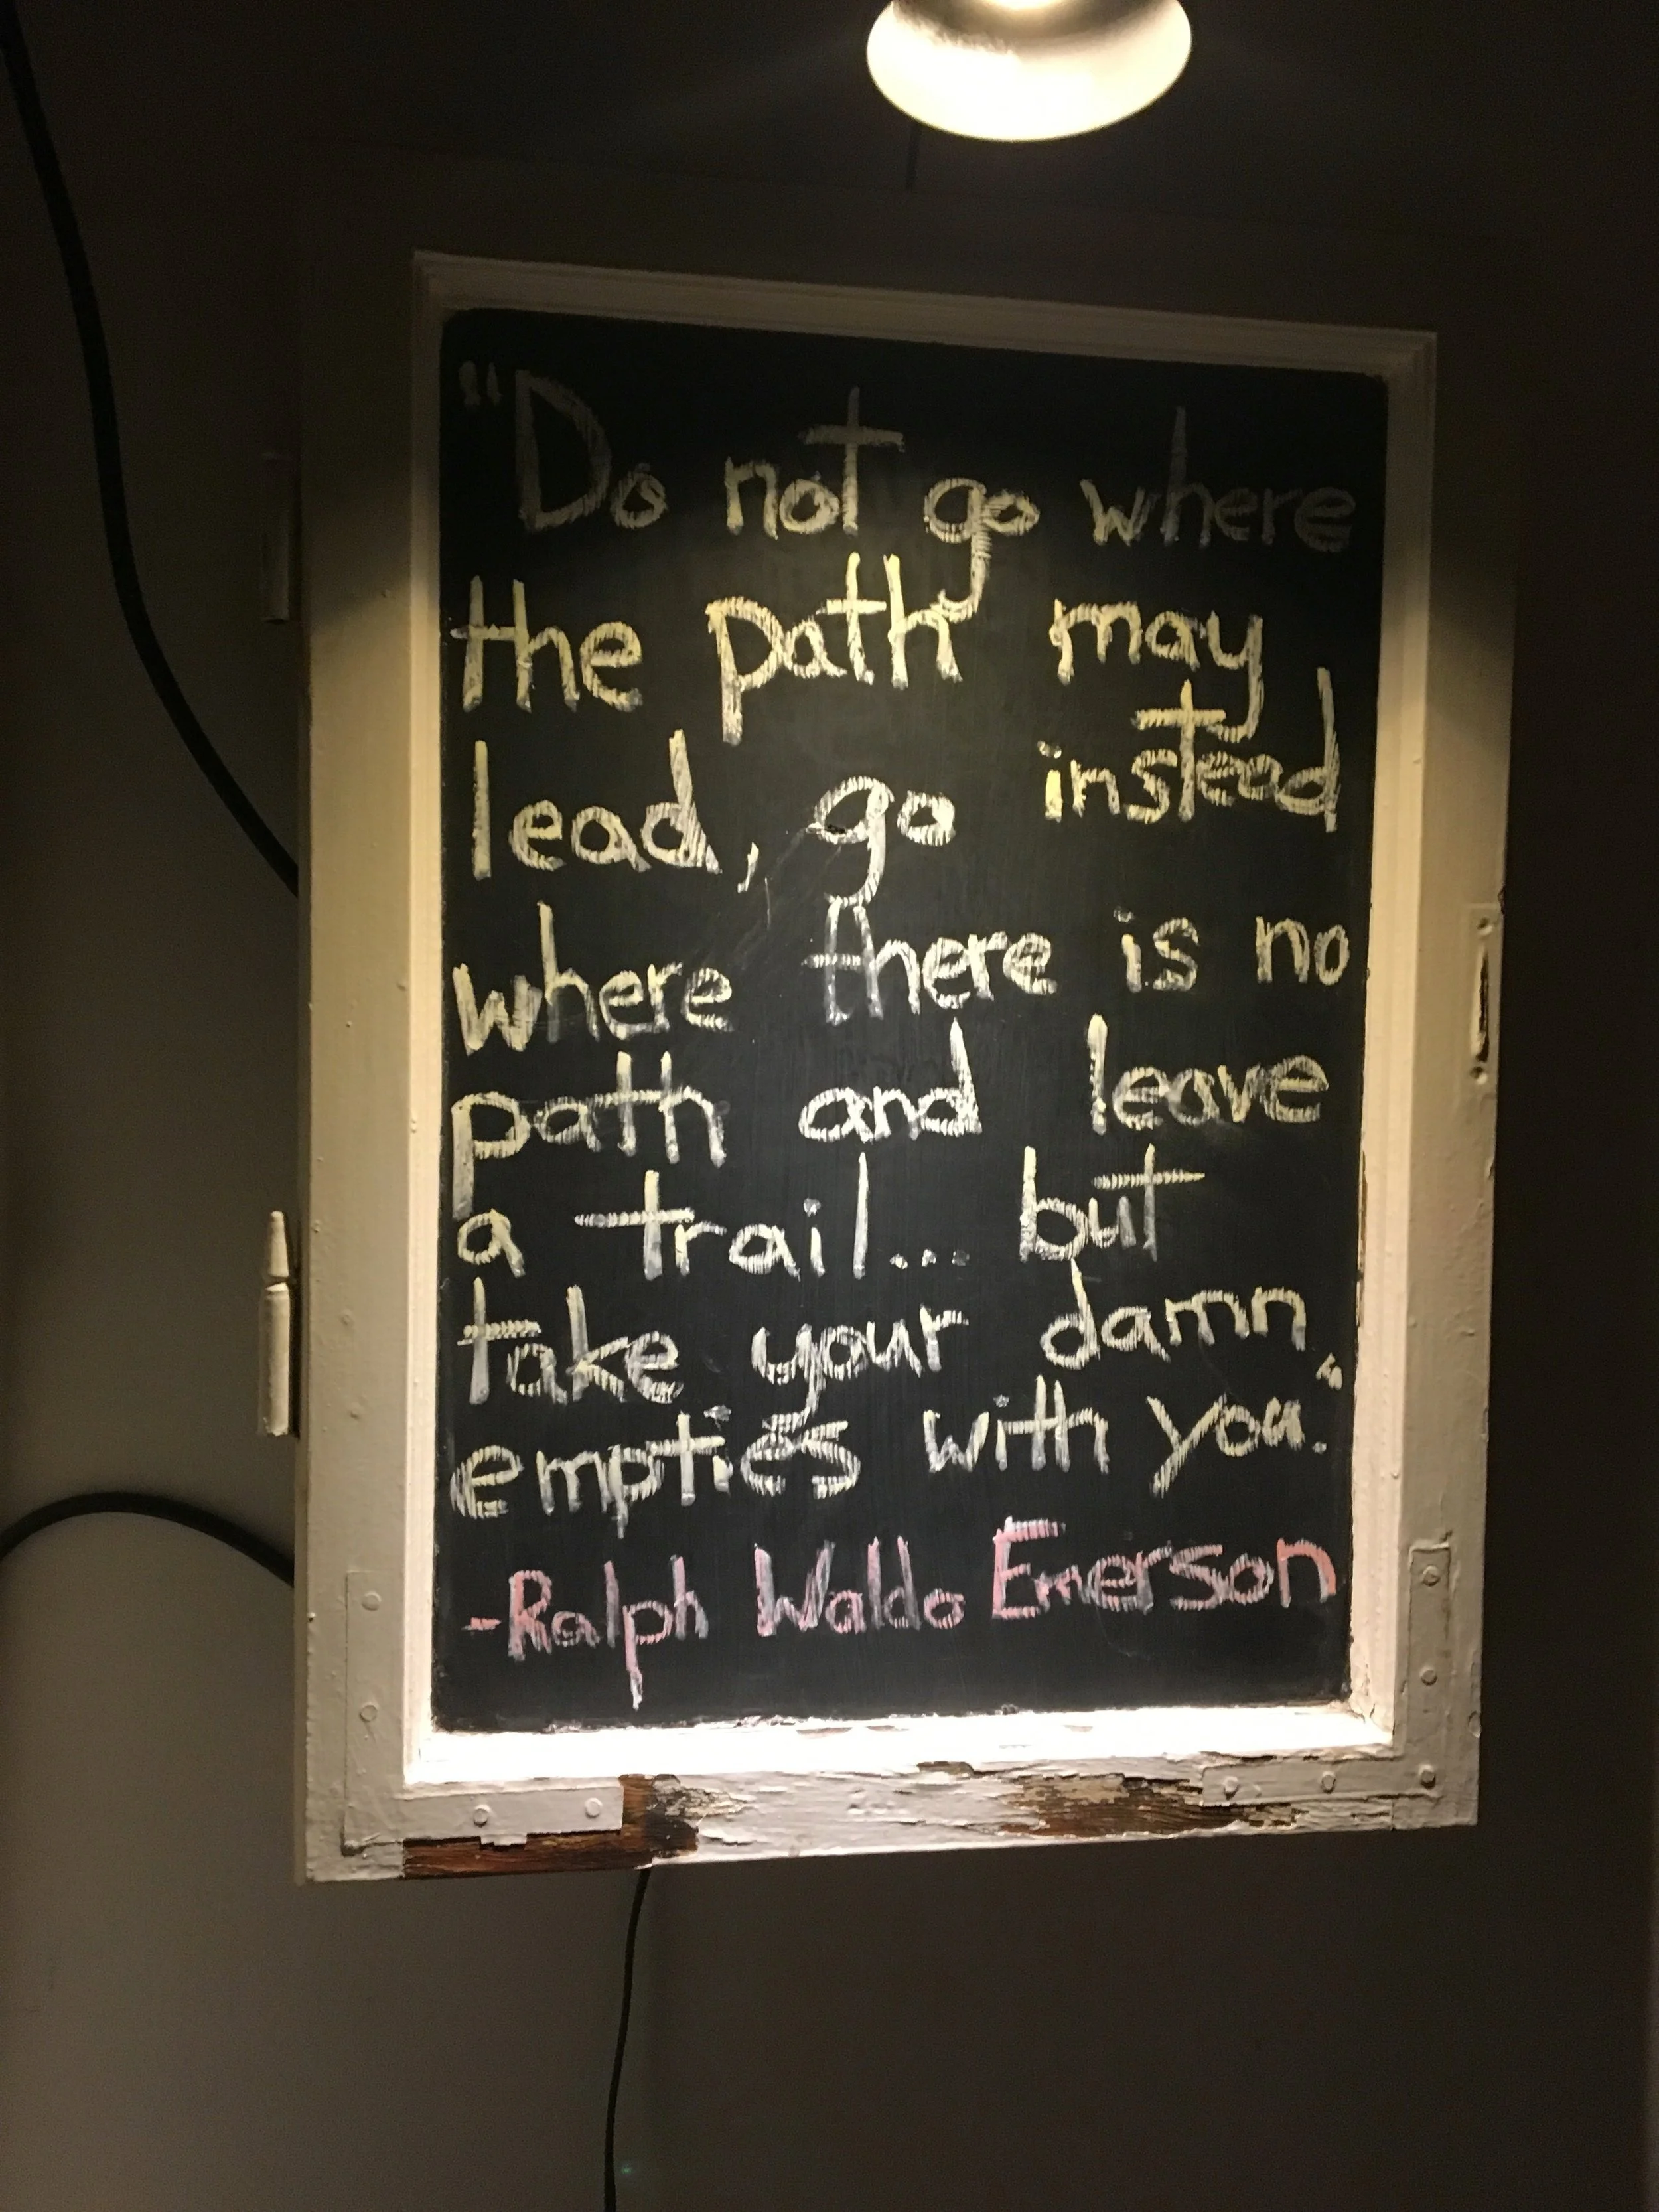 "Do not go where
the path may
lead, go instead
where there is no
path and leave
a trail... but
take your damn
empties with you."
-Ralph Waldo Emerson